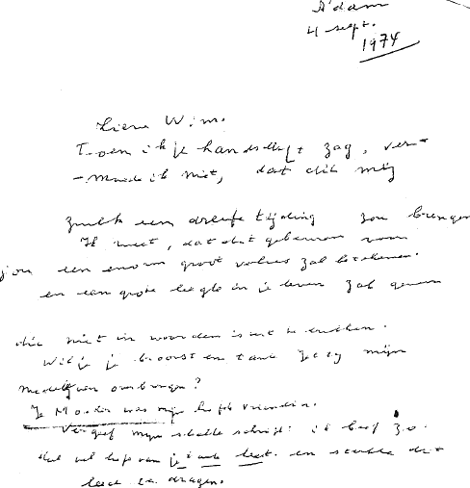 A'dam
4 sept.
1974
Lieve Wim.
Toen ik je handschrift zag, ver-
-moedde ik niet, dat dit mij
zulk een droeve tijding zou brengen
Ik weet, dat dit gebeuren voor
jou een enorm groot verlies zal betekenen.
en een grote leegte in je leven zal geven
die niet in woorden is uit te drukken.
Wil je je broers en tante mijn
medeleven overbrengen?
Je Moeder was mijn liefste vriendin.
Vergeef mijn slechte schrift: ik beef zo.
dat
leed te dragen.